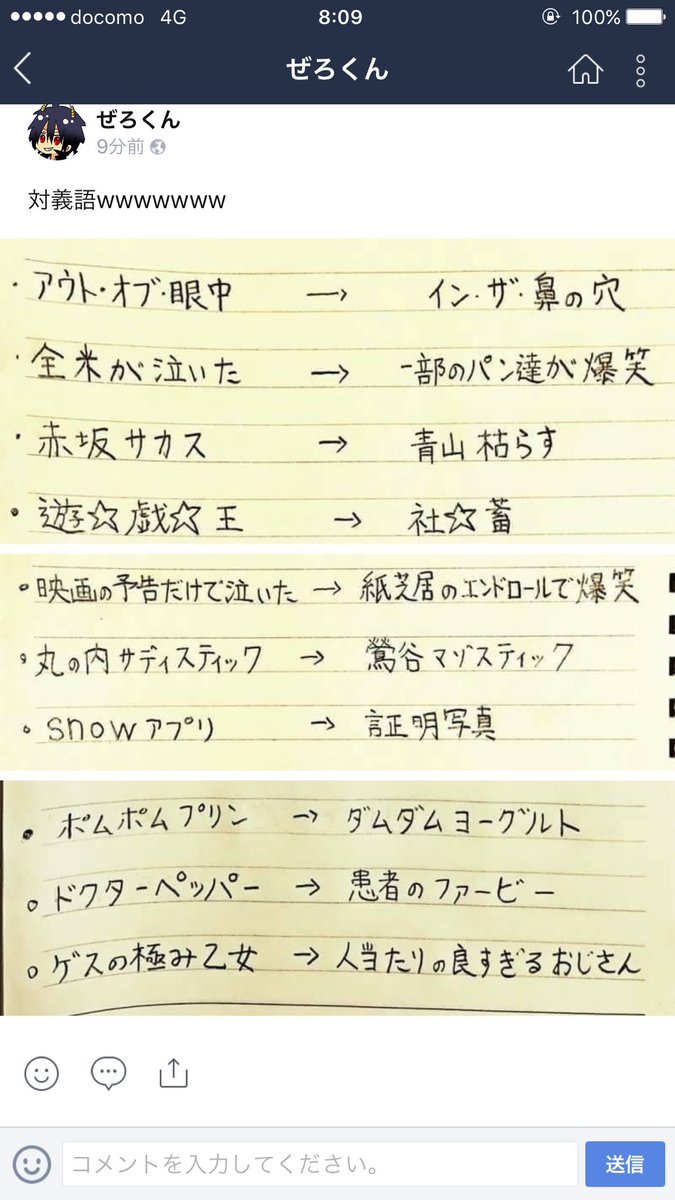 docomo 4G 8:09 100%
ぜろくん
ぜろくん
9分前
対義語wwwwwww
・アウト・オブ・眼中 → イン・ザ・鼻の穴
・全米が泣いた → 一部のパン達が爆笑
・赤坂サカス → 青山枯らす
・遊☆戯☆王 → 社☆蓄
・映画の予告だけで泣いた → 紙芝居のエンドロールで爆笑
・丸の内サディスティック → 鶯谷マゾスティック
・snowアプリ → 証明写真
・ポムポムプリン → ダムダムヨーグルト
・ドクターペッパー → 患者のファービー
・ゲスの極み乙女 → 人当たりの良すぎるおじさん
コメントを入力してください。
送信